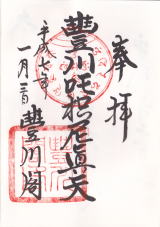 奉拝
豊川吒枳尼眞天
豊川閣
平成七年
一月三日